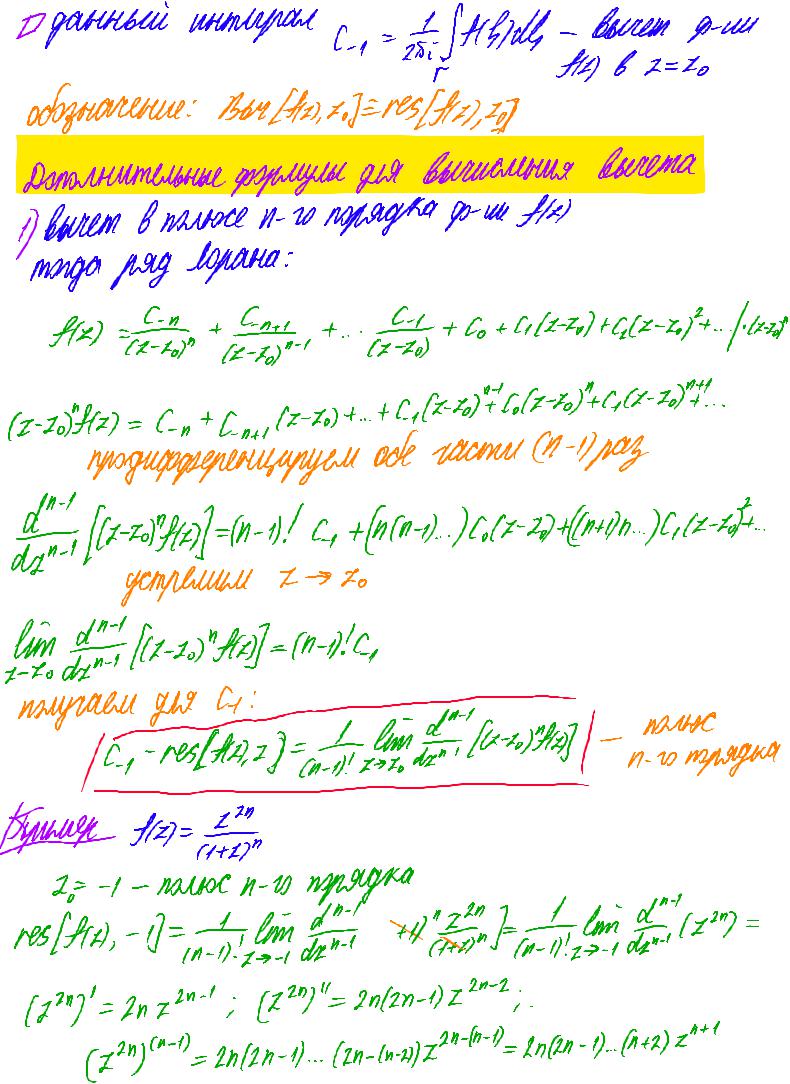 ▷ данный интеграл C₋₁ = 1/(2πi) ∫_Γ f(ξ)dξ – вычет ф-ии f(z) в z=z₀
обозначение: Выч[f(z), z₀] ≡ res[f(z), z₀]
Дополнительные формулы для вычисления вычета
1) вычет в полюсе n-го порядка ф-ии f(z)
тогда ряд Лорана:
f(z) = C₋ₙ/(z-z₀)ⁿ + C₋ₙ₊₁/(z-z₀)ⁿ⁻¹ + ... C₋₁/(z-z₀) + C₀ + C₁(z-z₀) + C₂(z-z₀)² + ... | ·(z-z₀)ⁿ
(z-z₀)ⁿf(z) = C₋ₙ + C₋ₙ₊₁(z-z₀) + ... + C₋₁(z-z₀)ⁿ⁻¹ + C₀(z-z₀)ⁿ + C₁(z-z₀)ⁿ⁺¹ + ...
продифференцируем обе части (n-1) раз
dⁿ⁻¹/dzⁿ⁻¹ [(z-z₀)ⁿf(z)] = (n-1)! C₋₁ + (n(n-1)...) C₀(z-z₀) + ((n+1)n...) C₁(z-z₀)² + ...
устремим z → z₀
lim z→z₀ dⁿ⁻¹/dzⁿ⁻¹ [(z-z₀)ⁿf(z)] = (n-1)! C₋₁
получаем для C₋₁:
C₋₁ - res[f(z), z] = 1/(n-1)! lim z→z₀ dⁿ⁻¹/dzⁿ⁻¹ [(z-z₀)ⁿf(z)] – полюс n-го порядка
Пример f(z) = z²ⁿ/(1+z)ⁿ
z₀ = -1 – полюс n-го порядка
res[f(z), -1] = 1/(n-1)! lim z→-1 dⁿ⁻¹/dzⁿ⁻¹ +1)ⁿ z²ⁿ/(1+z)ⁿ] = 1/(n-1)! lim z→-1 dⁿ⁻¹/dzⁿ⁻¹ (z²ⁿ) =
(z²ⁿ)' = 2n z²ⁿ⁻¹ ; (z²ⁿ)'' = 2n(2n-1) z²ⁿ⁻² ; .
(z²ⁿ)⁽ⁿ⁻¹⁾ = 2n(2n-1)... (2n-(n-2)) z²ⁿ⁻⁽ⁿ⁻¹⁾ = 2n(2n-1)...(n+2) zⁿ⁺¹